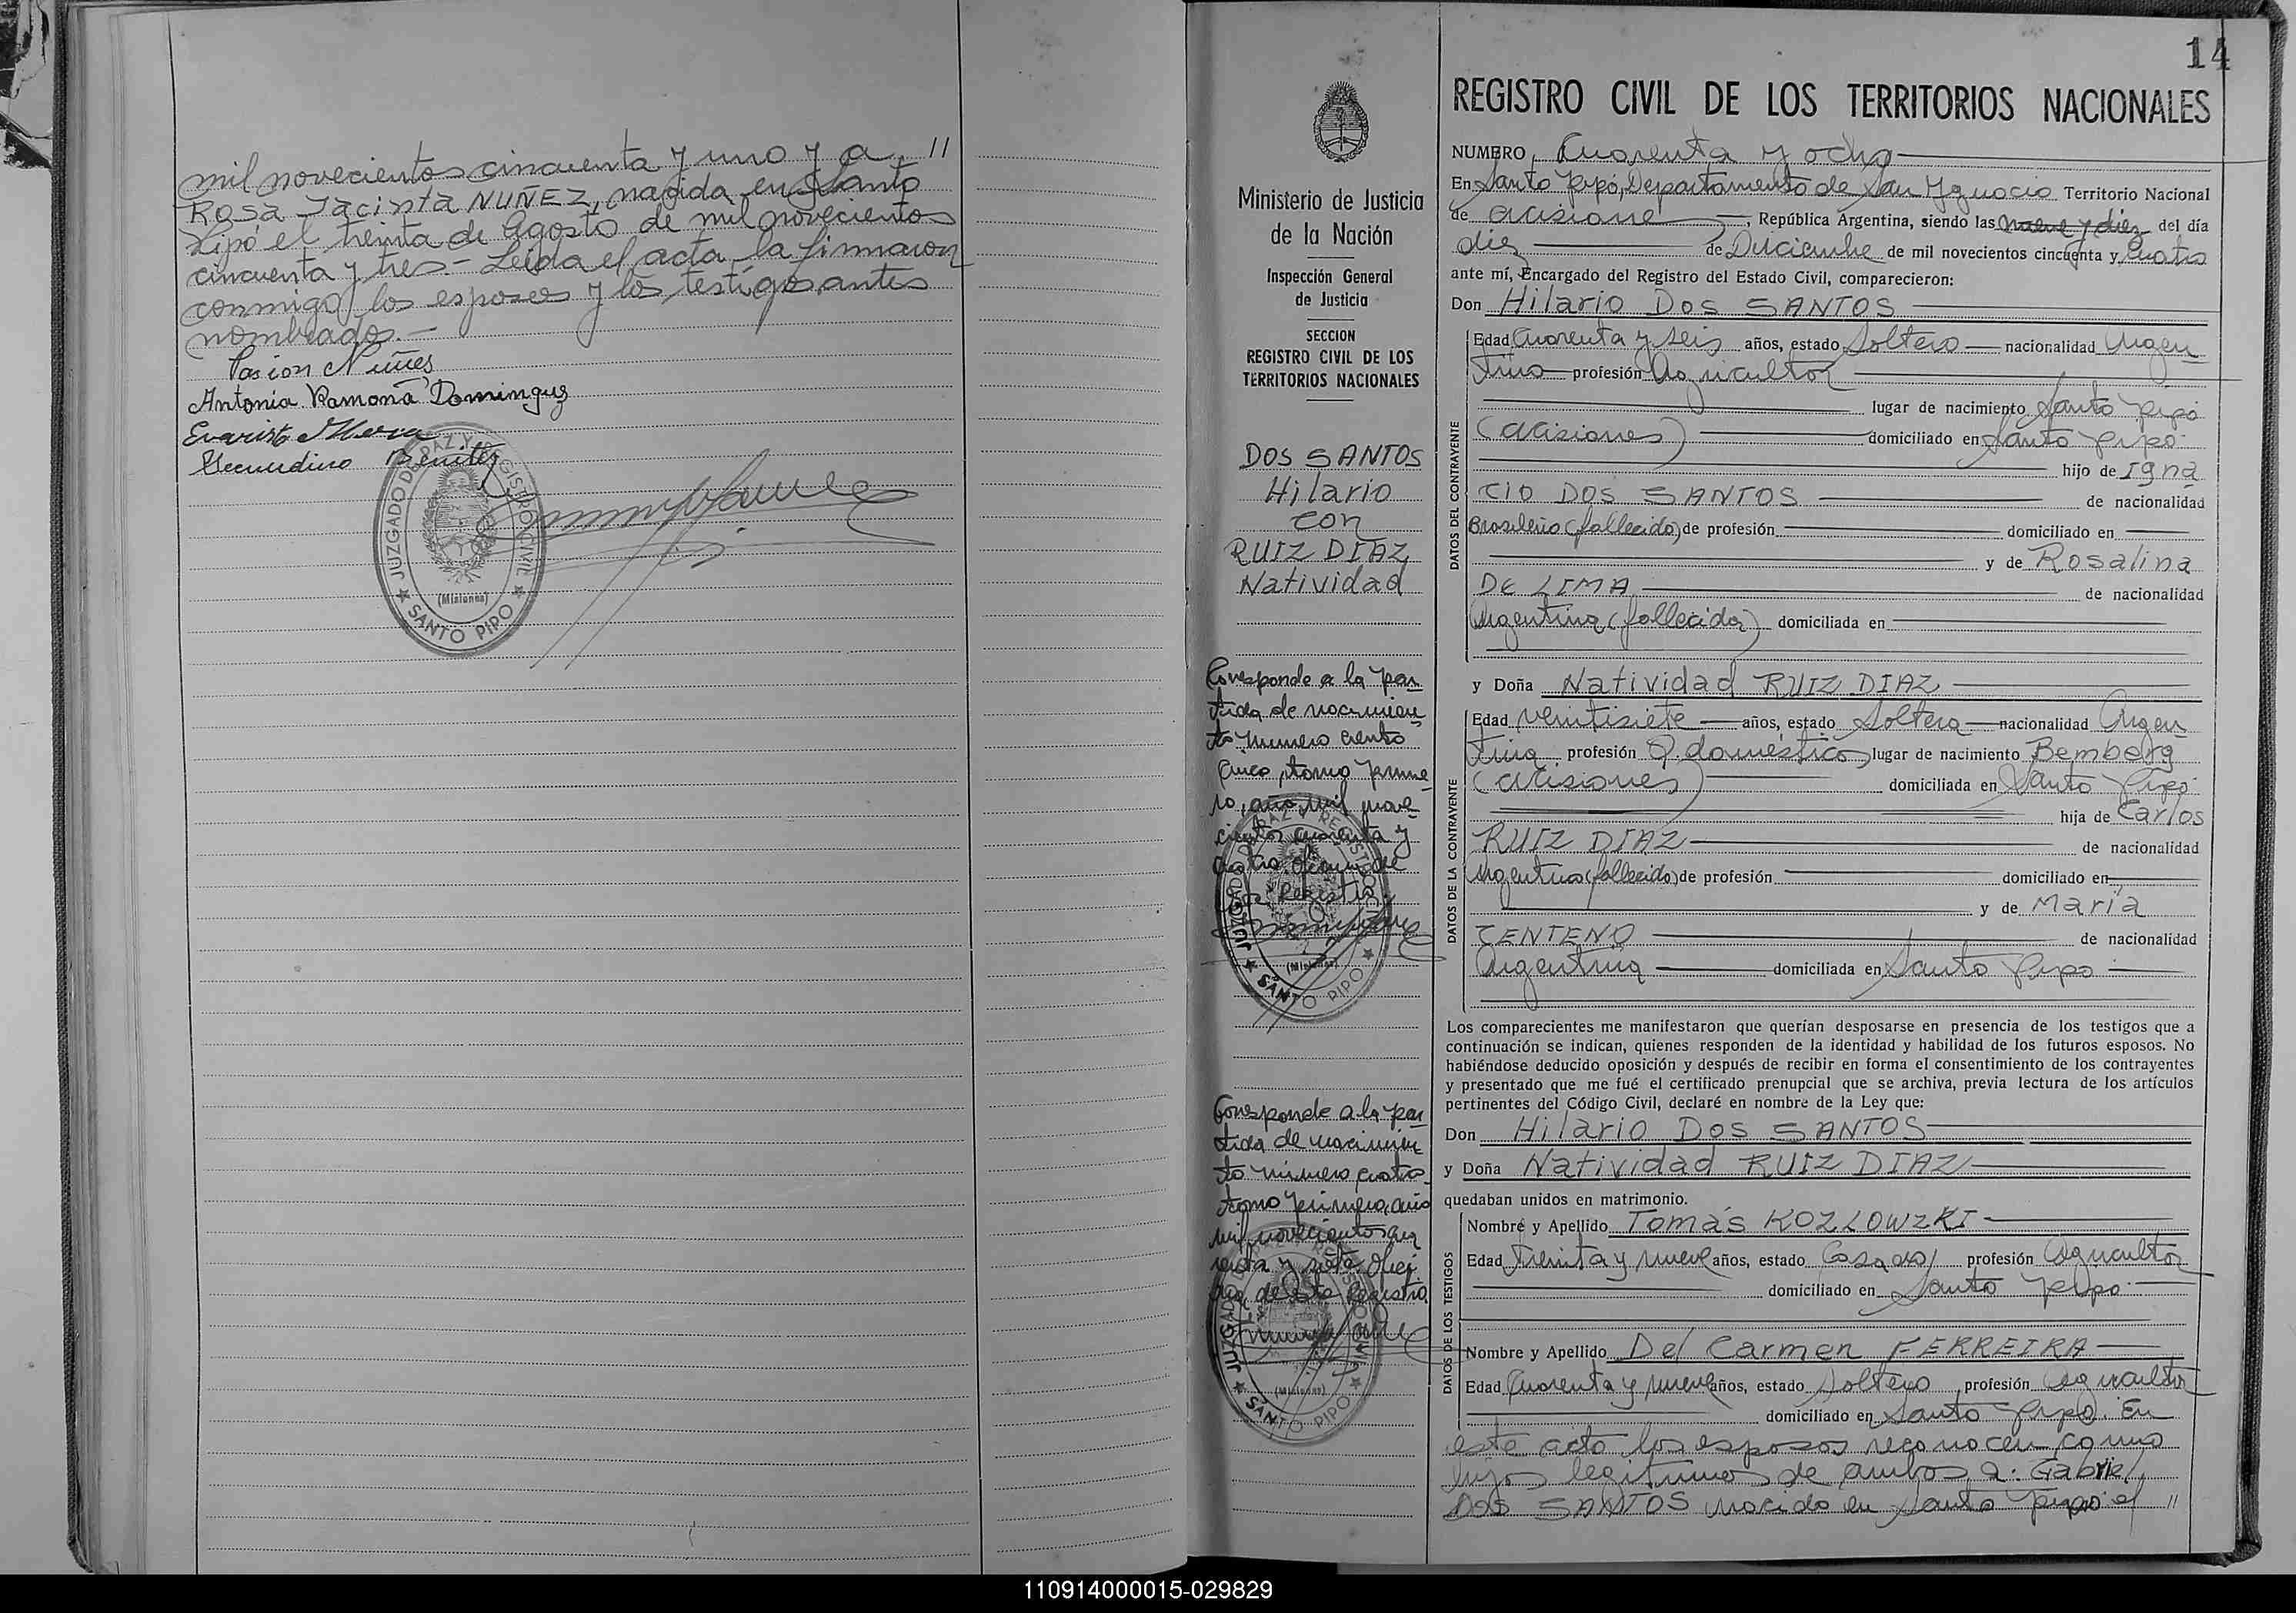 mil novecientos cincuenta y uno y a "
Rosa Jacinta NUÑEZ, nacida en Santo
Pipó el treinta de Agosto de mil novecientos
cincuenta y tres.- Leída el acta la firmaron
conmigo los esposos y los testigos antes
nombrados.-
Pasion Nuñes
Antonia Ramona Dominguez
Evaristo
Secundino Benitez
JUZGADO DE PAZ Y REGISTRO CIVIL
(Misiones)
SANTO PIPO
14
Ministerio de Justicia
de la Nación
Inspección General
de Justicia
SECCION
REGISTRO CIVIL DE LOS
TERRITORIOS NACIONALES
DOS SANTOS
Hilario
con
RUIZ DIAZ
Natividad
Corresponde a la par
tida de nacimien
to número ciento
cinco, tomo prime
ro, año mil nove
cientos cuarenta y
cuatro oficina de
este Registro
JUZGADO DE PAZ Y REGISTRO CIVIL
(Misiones)
SANTO PIPO
Corresponde a la par
tida de nacimien
to número cuatro
tomo primero, año
mil novecientos cua
renta y siete ofici
na de este Registro
JUZGADO DE PAZ Y REGISTRO CIVIL
(Misiones)
SANTO PIPO
REGISTRO CIVIL DE LOS TERRITORIOS NACIONALES
NUMERO Cuarenta y ocho
En Santo Pipó, Departamento de San Ygnacio Territorio Nacional
de Misiones, República Argentina, siendo las nueve y diez del día
diez de Diciembre de mil novecientos cincuenta y cuatro
ante mí, Encargado del Registro del Estado Civil, comparecieron:
Don Hilario Dos SANTOS
DATOS DEL CONTRAYENTE
Edad Cuarenta y seis años, estado Soltero nacionalidad Argen
tino profesión Agricultor
lugar de nacimiento Santo Pipó
(Misiones) domiciliado en Santo Pipó
hijo de Igna
cio DOS SANTOS de nacionalidad
Brasileño (fallecido) de profesión domiciliado en
y de Rosalina
DE LIMA de nacionalidad
Argentina (fallecida) domiciliada en
y Doña Natividad RUIZ DIAZ
DATOS DE LA CONTRAYENTE
Edad veintisiete años, estado Soltera nacionalidad Argen
tina profesión Q. domésticos lugar de nacimiento Bemberg
(Misiones) domiciliada en Santo Pipó
hija de Carlos
RUIZ DIAZ de nacionalidad
Argentino (fallecido) de profesión domiciliado en
y de María
CENTENO de nacionalidad
Argentina domiciliada en Santo Pipó
Los comparecientes me manifestaron que querían desposarse en presencia de los testigos que a
continuación se indican, quienes responden de la identidad y habilidad de los futuros esposos. No
habiéndose deducido oposición y después de recibir en forma el consentimiento de los contrayentes
y presentado que me fué el certificado prenupcial que se archiva, previa lectura de los artículos
pertinentes del Código Civil, declaré en nombre de la Ley que:
Don Hilario Dos SANTOS
y Doña Natividad RUIZ DIAZ
quedaban unidos en matrimonio.
DATOS DE LOS TESTIGOS
Nombre y Apellido Tomás KOZLOWZKI
Edad Treinta y nueve años, estado Casado profesión Agricultor
domiciliado en Santo Pipó
Nombre y Apellido Del Carmen FERREIRA
Edad Cuarenta y nueve años, estado Soltero profesión Agricultor
domiciliado en Santo Pipó. En
este acto los esposos reconocen como
hijos legítimos de ambos a: Gabriel
DOS SANTOS nacido en Santo Pipó el "
110914000015-029829